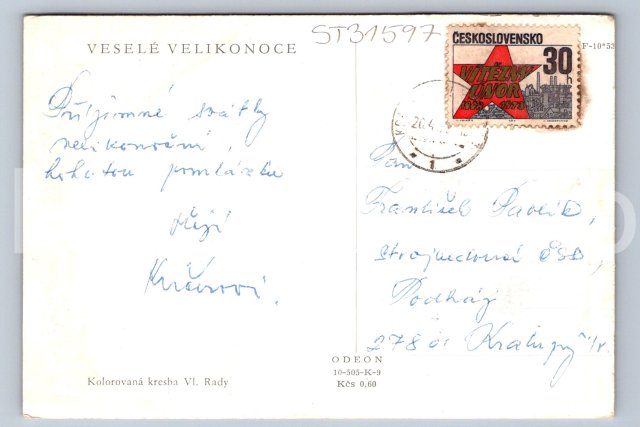 VESELÉ VELIKONOCE
ST31597
F-10*53
ČESKOSLOVENSKO
30 h
VÍTĚZNÝ
ÚNOR
1948 1973
Příjemné svátky
velikonoční,
bohatou pomlázku
přejí
Kučerovi.
1
Pan
František Pavlík,
strojvedoucí ČSD,
Podháj
278 01 Kralupy n/V.
ODEON
10-505-K-9
Kčs 0,60
Kolorovaná kresba Vl. Rady